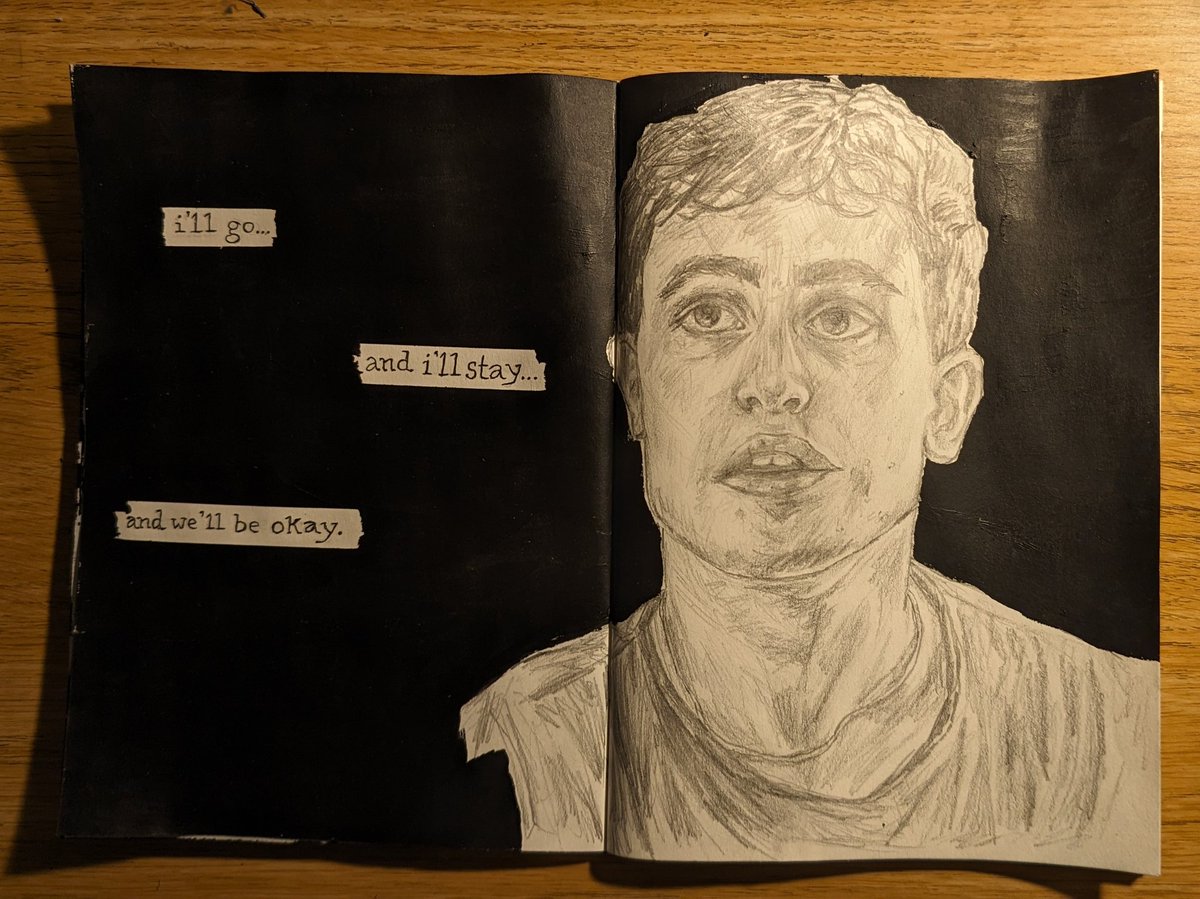 i'll go...
and i'll stay...
and we'll be okay.